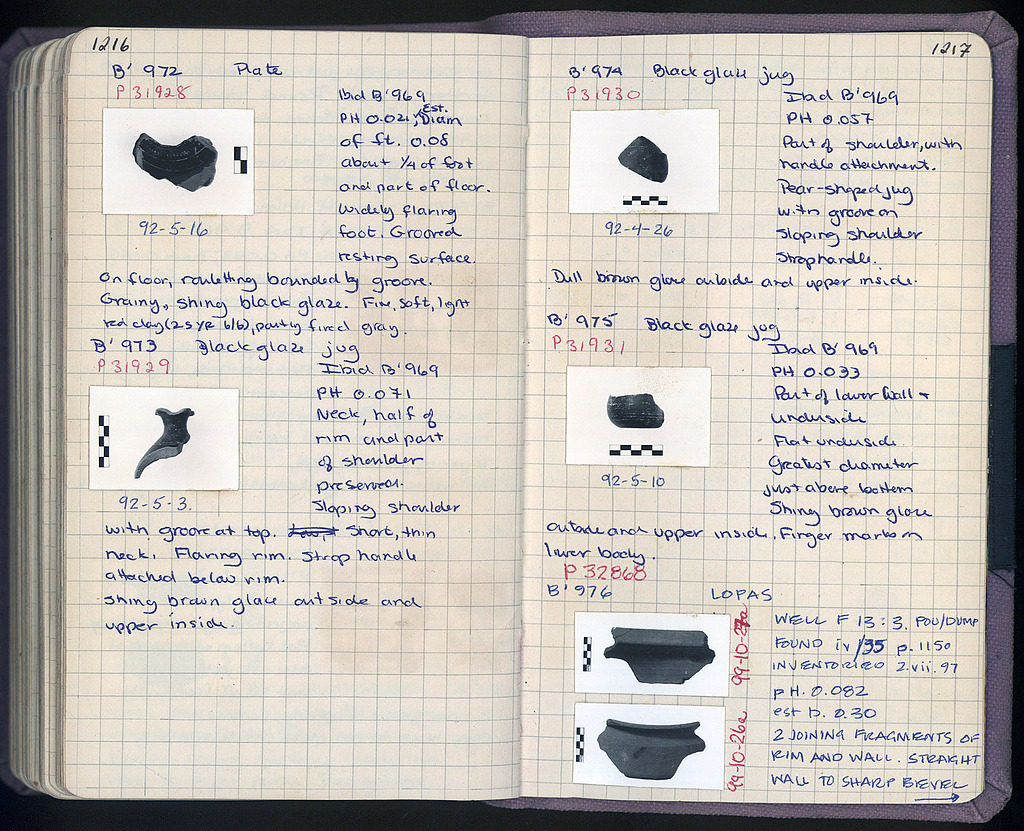 1216
B' 972 Plate
P 31928
Ibid B'969
PH 0.021, Est. Diam
of ft. 0.08
about 1/4 of foot
and part of floor.
Widely flaring
foot. Grooved
resting surface.
92-5-16
On floor, rouletting bounded by groove.
Grainy, shiny black glaze. Fine, soft, light
red clay (2.5 YR 6/6), partly fired gray.
B' 973 Black glaze jug
P 31929
Ibid B'969
PH 0.071
Neck, half of
rim and part
of shoulder
preserved.
Sloping shoulder
92-5-3.
with groove at top. Short, thin
neck. Flaring rim. Strap handle
attached below rim.
Shiny brown glaze outside and
upper inside.
1217
B' 974 Black glaze jug
P 31930
Ibid B'969
PH 0.057
Part of shoulder, with
handle attachment.
Pear-shaped jug
with groove on
sloping shoulder
Strap handle.
92-4-26
Dull brown glaze outside and upper inside.
B' 975 Black glaze jug
P 31931
Ibid B' 969
PH 0.033
Part of lower wall +
underside
Flat underside
Greatest diameter
just above bottom
Shiny brown glaze
92-5-10
outside and upper inside. Finger marks on
lower body.
P 32868
B' 976 LOPAS
WELL F 13:3. POU/DUMP
FOUND iv/35 p. 1150
INVENTORIED 2.vii.97
pH. 0.082
est D. 0.30
2 JOINING FRAGMENTS OF
RIM AND WALL. STRAIGHT
WALL TO SHARP BEVEL
99-10-27a
99-10-26a